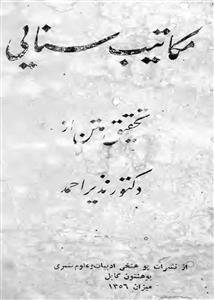 مکاتیب سنایی
تحقیق متن از
دکتور نذیر احمد
از نشرات پوهنځی ادبیات و علوم بشری
پوهنتون کابل
میزان ۱۳۵۶